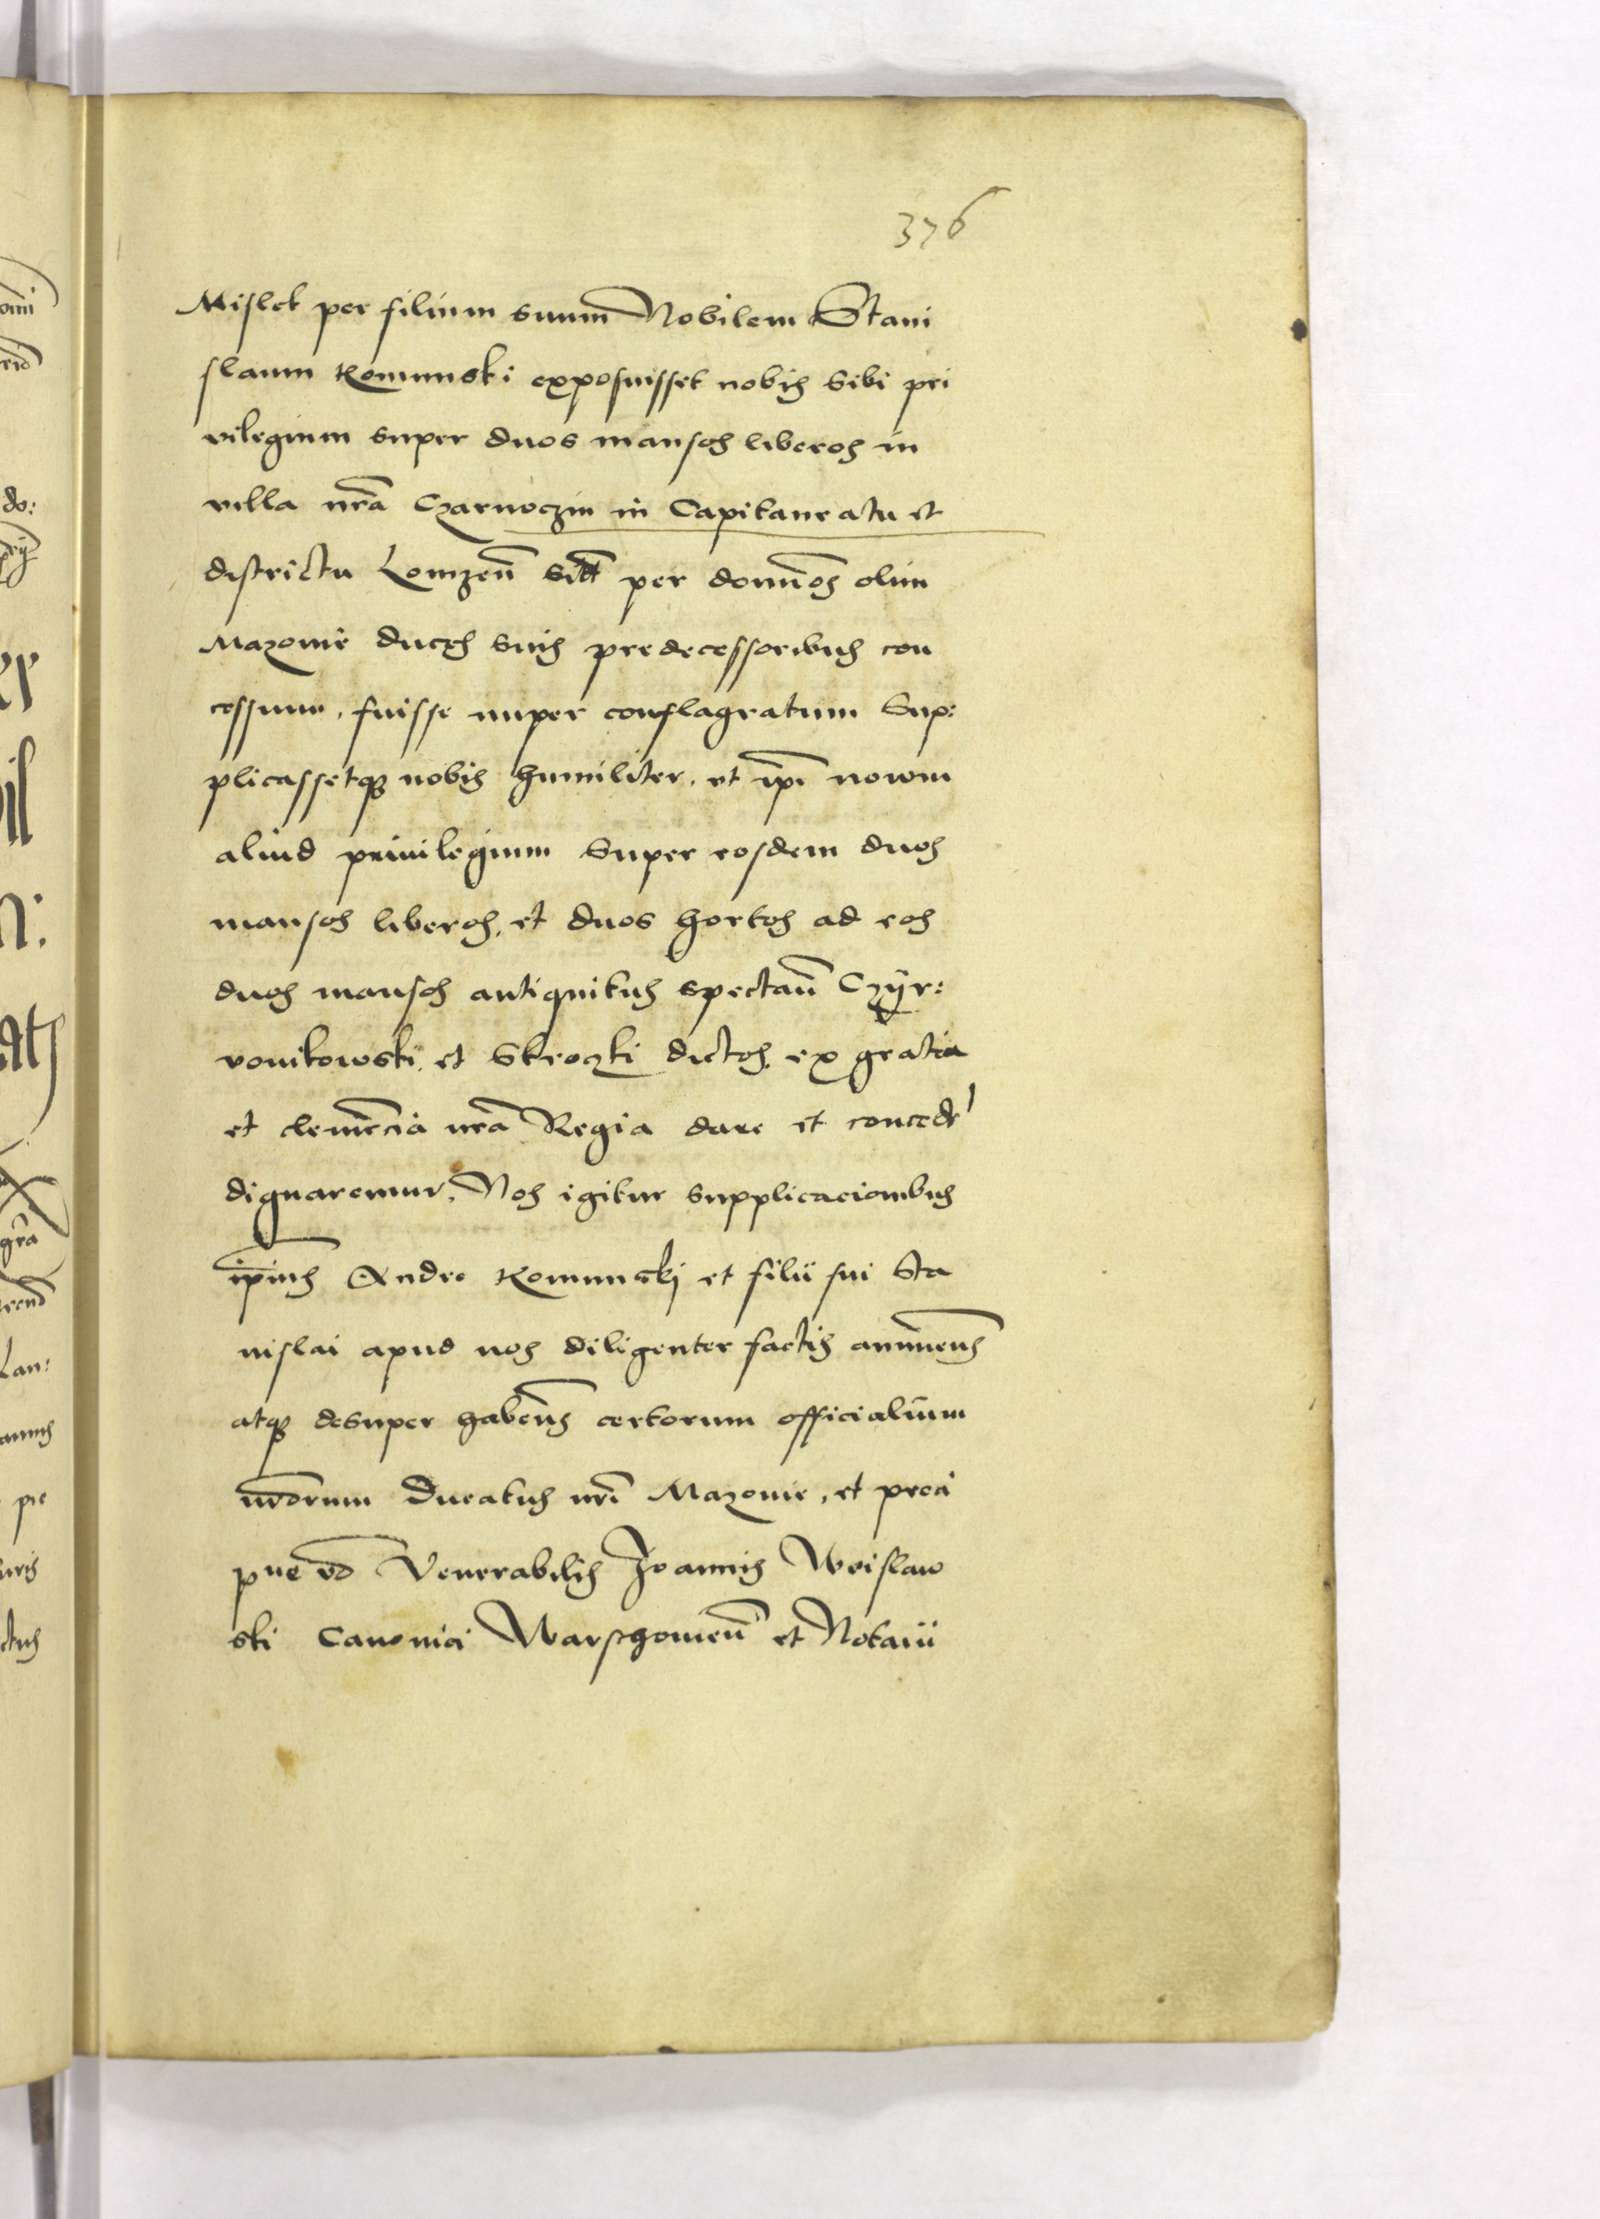 376
Mislek per filium suum Nobilem Stani
slaum Komunski exposuisset nobis Sibi pri
vilegium super duos mansos liberos in
villa nr̃a Czarnoczin in Capitaneatu et
districtu Lomzeñ per domĩos olim
Mazovie duces suis predecessoribus con
cessum, fuisse nuper conflagratum Sup:
plicassetq; nobis humiliter, et ip̃i novum
aliud privilegium Super eosdem duos
mansos liberos, et duos hortos ad eos
duos mansos antiquitus spectañ Czÿr:
vonikowski, et Skroczki dictos, ex gratia
et clemẽcia nr̃a Regia dare et concedr̃
dignaremur, Nos igitur supplicacionibus
ip̃ius Andre Komunskj et filii sui Sta
nislai apud nos diligenter factis annueñs
atq; desuper habeñs certorum officialium
nr̃orum Ducatus nr̃i Mazovie, et preci
pue Venerabilis Joannis Wrislaw
ski Canonici Warschovieñ et Notarii